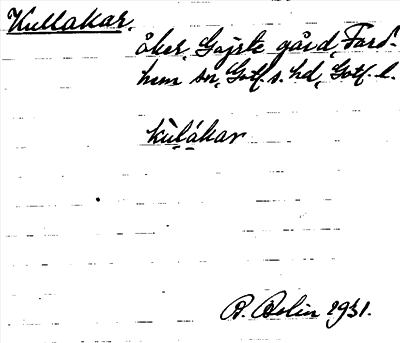 Kullakar.
åker, Gajste gård, Fard-
hem sn, Gotl. s. hd, Gotl. l.
kùlákar
B. Bolin 1931.